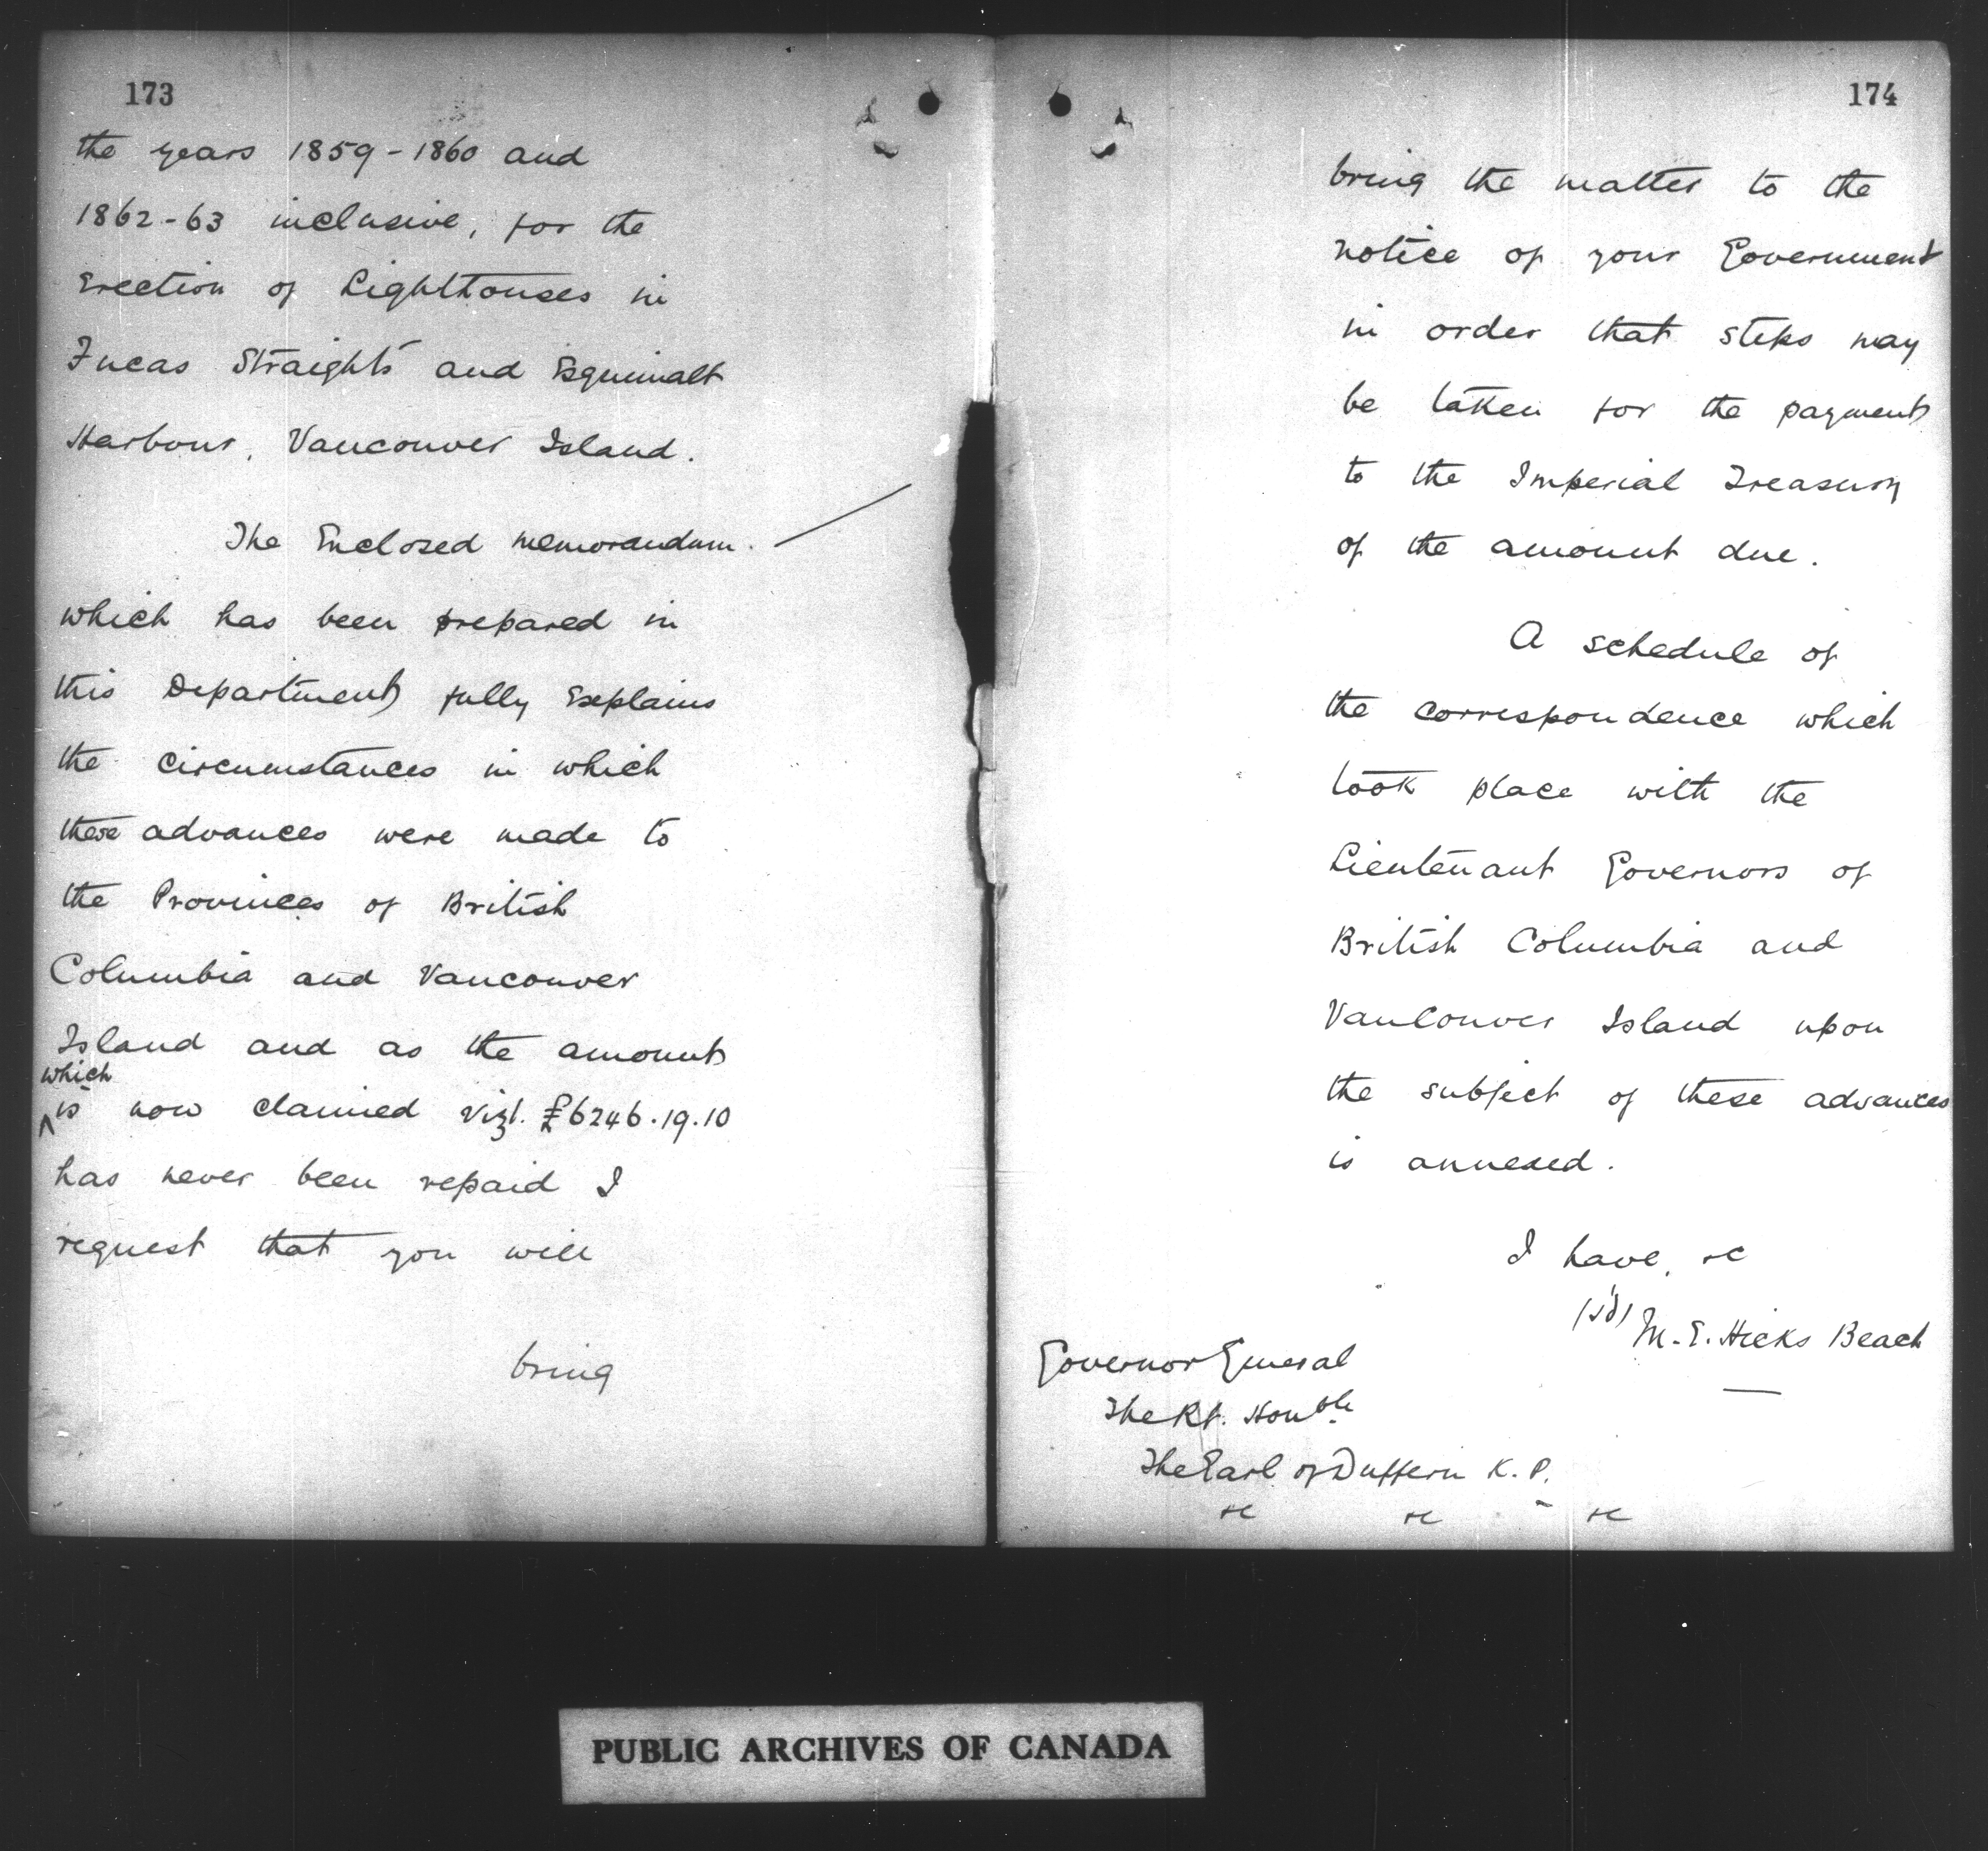 173
the years 1859-1860 and
1862-63 inclusive, for the
Erection of Lighthouses in
Fucas Straights and Esquimalt
Harbour, Vancouver Island.
The Enclosed memorandum.
which has been prepared in
this Department fully Explains
the circumstances in which
these advances were made to
the Provinces of British
Columbia and Vancouver
Island and as the amount
which
is now claimed vizt. £6246.19.10
has never been repaid I
request that you will
bring
174
bring the matter to the
notice of your Government
in order that steps may
be taken for the payment
to the Imperial Treasury
of the amount due.
A schedule of
the correspondence which
took place with the
Lieutenant Governors of
British Columbia and
Vancouver Island upon
the subject of these advances
is annexed.
I have, &c
(sd) M. E. Hicks Beach
Governor General
The Rt. Honble
The Earl of Dufferin K. P.
&c &c &c
PUBLIC ARCHIVES OF CANADA